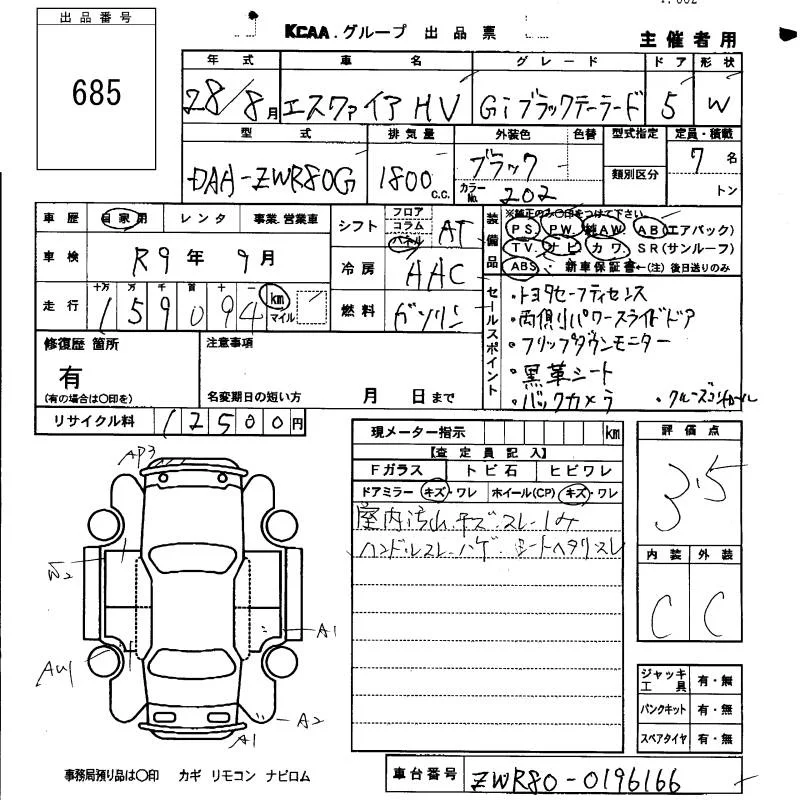 出品番号
685
KCAA.グループ 出品票
主催者用
年式 車名 グレード ドア 形状
28/8月 エスクァイア HV Gi ブラックテーラード 5 W
型式 排気量 外装色 色替 型式指定 定員・積載
DAA-ZWR80G 1800 c.c. ブラック 類別区分 7名
カラーNo. 202 トン
車歴 自家用 レンタ 事業.営業車
車検 R9年9月
走行 十万 万 千 百 十 一 km マイル
159094
シフト フロア コラム パネル AT
冷房 AAC
燃料 ガソリン
装備品
※純正のみ〇印をつけて下さい
PS. PW. 純AW. AB(エアバック)
TV. ナビ カワ SR(サンルーフ)
ABS 新車保証書←(注)後日送りのみ
セールスポイント
・トヨタセーフティセンス
・両側パワースライドドア
・フリップダウンモニター
・黒革シート
・バックカメラ ・クルーズコントロール
修復歴 箇所
有
(有の場合は〇印を)
注意事項
名変期日の短い方 月 日まで
リサイクル料 12500円
現メーター指示 km
【査定員記入】
Fガラス トビ石 ヒビワレ
ドアミラー キズ・ワレ ホイール(CP) キズ・ワレ
室内汚れ.キズ.スレ.しみ
ハンドルスレ.ハゲ. シートヘタリ.スレ
評価点
3.5
内装 外装
C C
ジャッキ工具 有・無
パンクキット 有・無
スペアタイヤ 有・無
AP3
W2
A1
AW1
A2
A1
事務局預り品は〇印 カギ リモコン ナビロム
車台番号 ZWR80-0196166